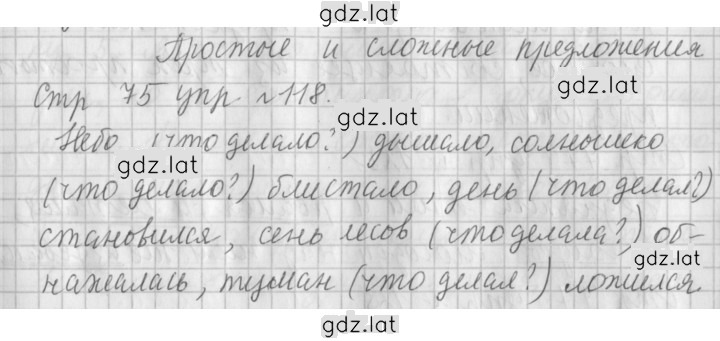 gdz.lat
Простые и сложные предложения
gdz.lat
Стр 75 упр №118.
gdz.lat
Небо (что делало?) дышало, солнышко
gdz.lat
(что делало?) блистало, день (что делал?)
становился, сень лесов (что делала?) об-
gdz.lat
нажалась, туман (что делал?) ложился.
gdz.lat